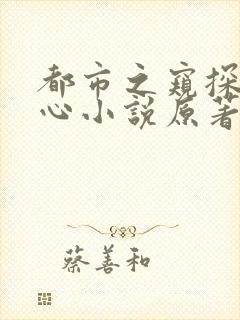 都市之窥探
心小說原著
蔡善和